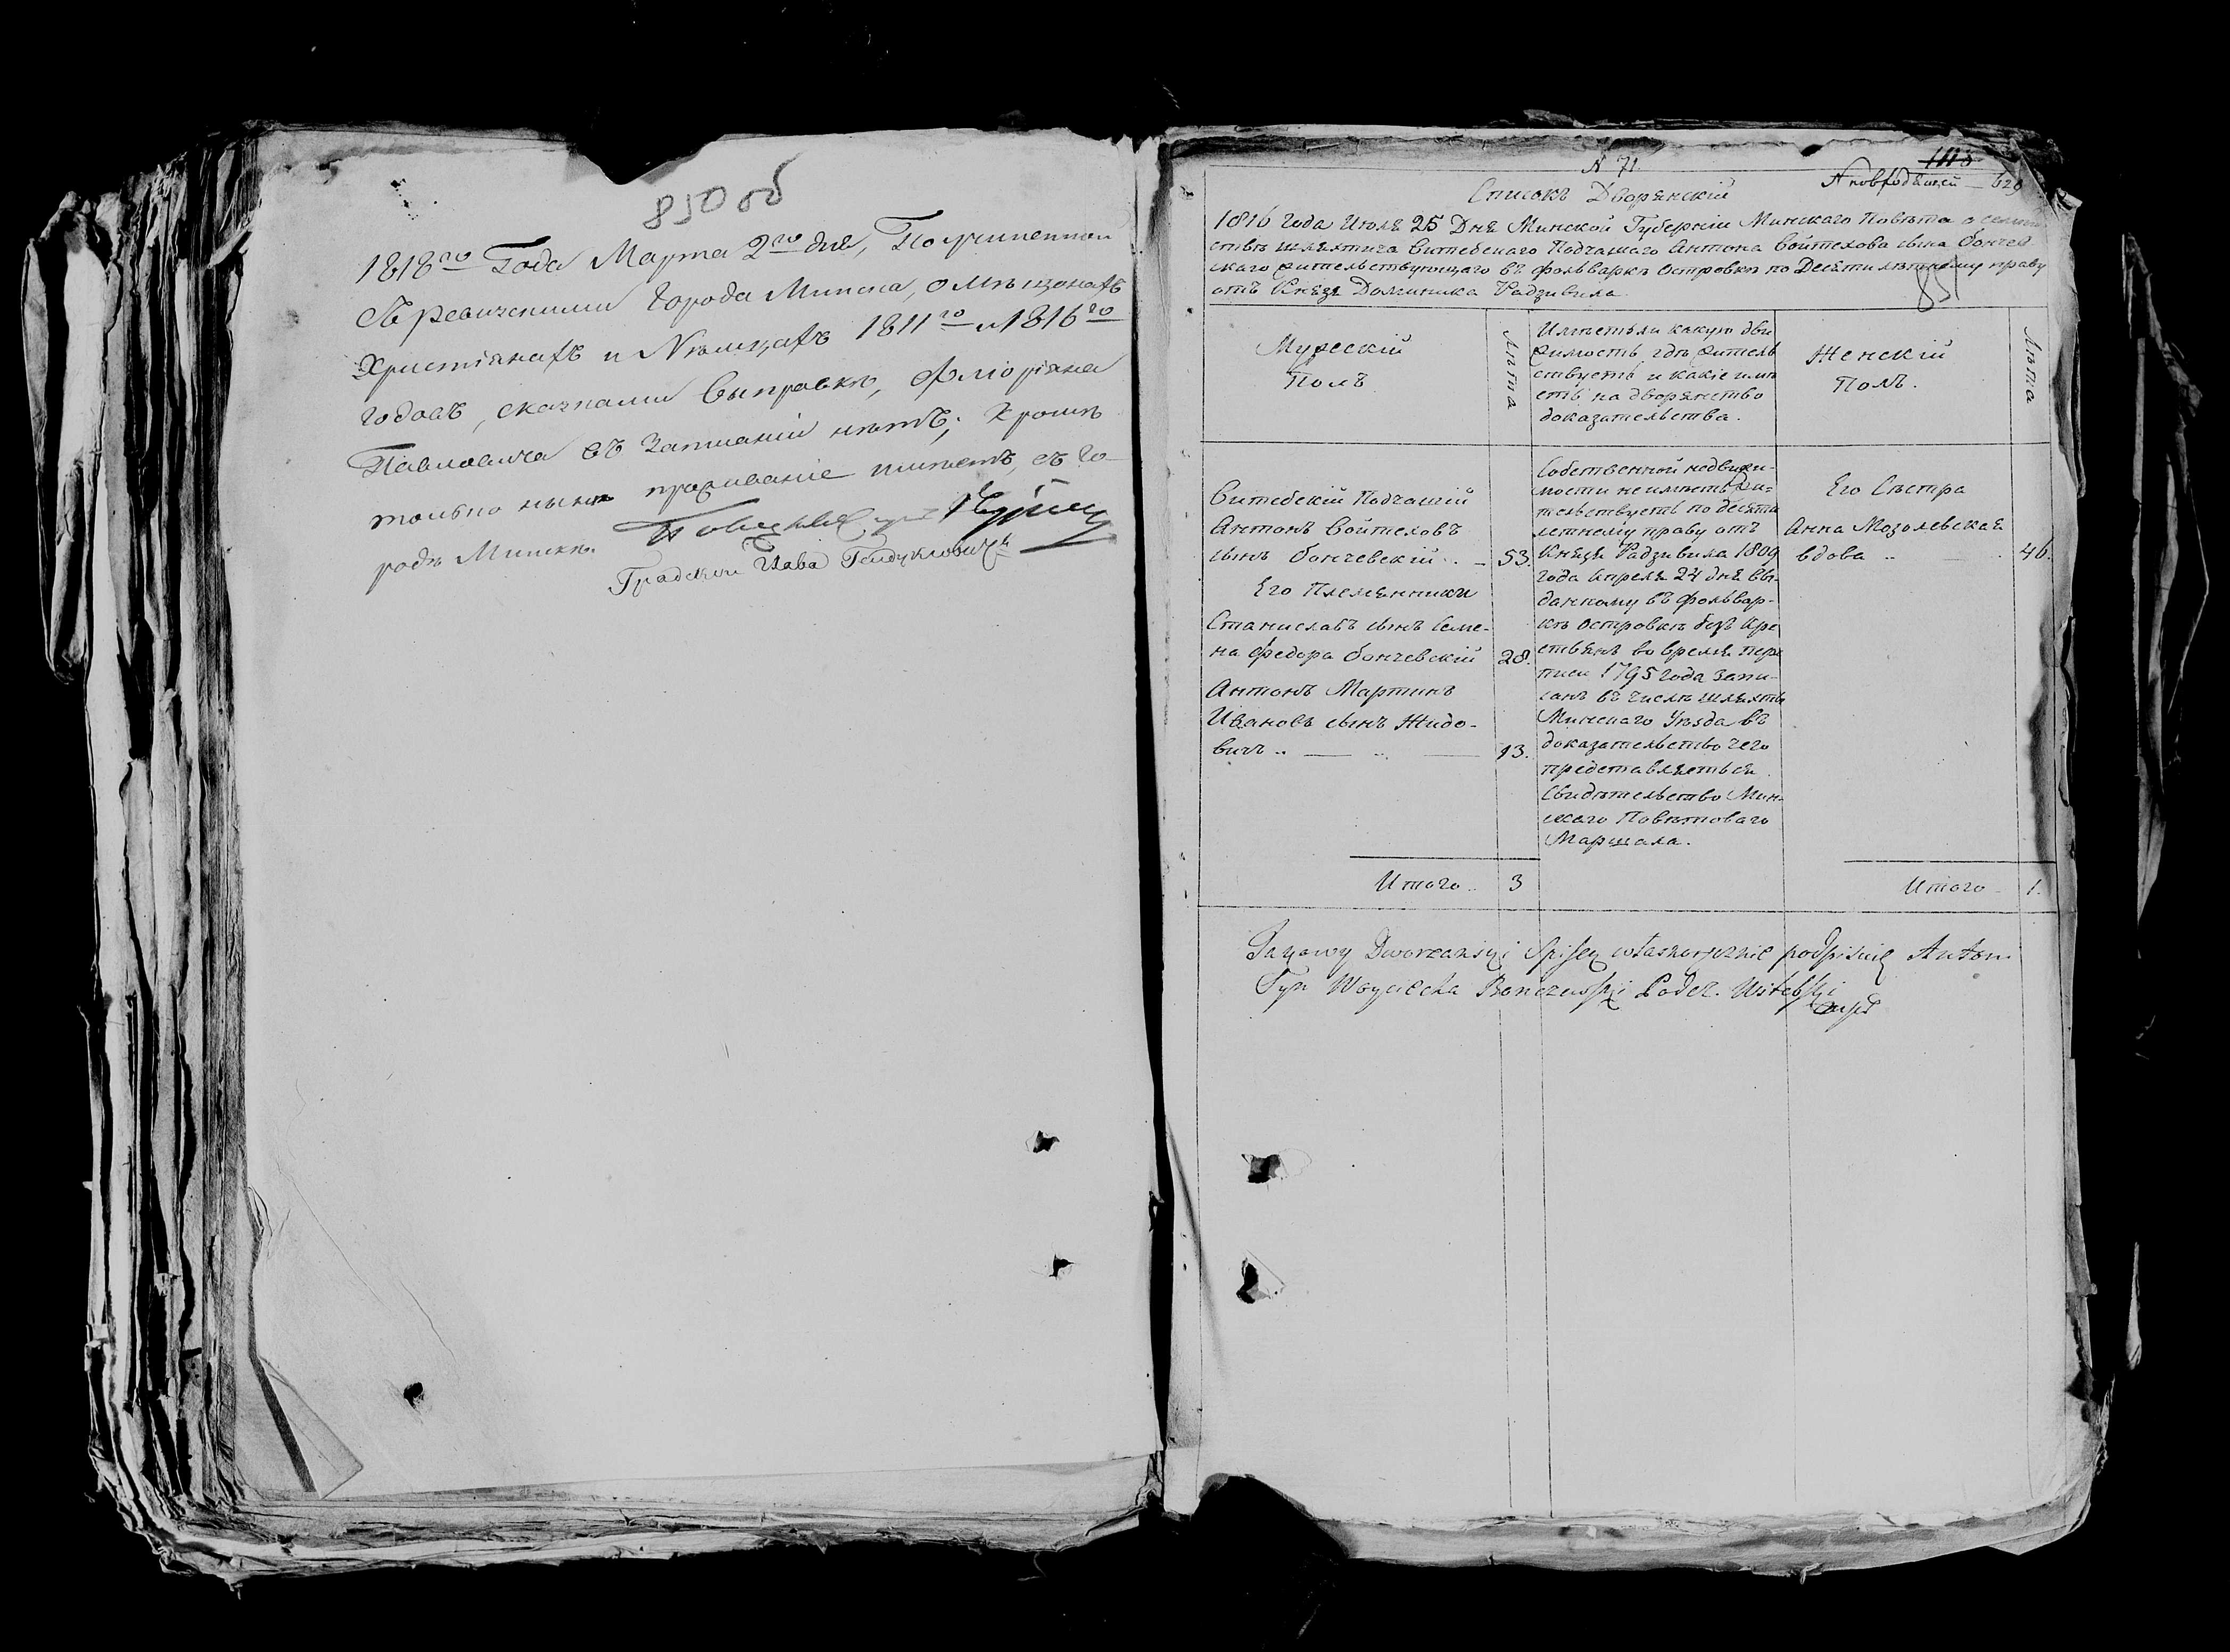 850 об
1818го Года Марта 2го дня, По учиненной
съ Ревизскими города Минска, о мѣщанахъ
Христіянахъ и Нѣмцахъ 1811го и 1816го
годовъ, сказками выправкѣ, Флiоріяна
Павловича въ записаніи нѣтъ; кромѣ
только нынѣ проживаніе имѣетъ, въ Го-
родѣ Минскѣ.
Градской Глава Гайдукловичъ
N 71.
1113
N повѣрочной — 629
Списокъ Дворянскій
1816 года Июля 25 Дня Минской Губерніи Минскаго Повѣта о семей-
ствѣ шляхтича Витебскаго Подчашаго Антона Войтехова сына Бончев
скаго жительствующаго въ фольваркѣ Островкѣ по Десятилѣтнему праву
отъ Князя Доминика Радзивила.
851
Мужескій
Полъ
Лѣта
Имѣетъ ли какую дви
жимость, гдѣ житель
ствуетъ и какіе имѣ
етъ на дворянство
доказательства.
Женскій
Полъ.
Лѣта
Витебскій Подчашій
Антонъ Войтеховъ
сынъ Бончевскій .. — 53.
Его Племянники
Станиславъ сынъ Семе-
на Федора Бончевскій 28.
Антонъ Мартинъ
Ивановъ сынъ Жидо-
вичъ .. — .. — 13.
Собственной недвижи-
мости не имѣетъ жи-
тельствуетъ по десяти
летнему праву отъ
Князя Радзивила 1809
года Апреля 24 дня вы-
данному въ фольвар-
кѣ Островкѣ безъ кре
стьянъ во время пере
писи 1795 года запи-
санъ въ числѣ шляхты
Минскаго Уезда въ
доказательство чего
представляеться
Свидѣтельство Мин-
скаго Повѣтоваго
Маршала.
Его Сѣстра
Анна Мозолевская
вдова .. 46.
Итого .. 3
Итого .. 1.
Takowy Dworzanski Spisek własnoręcznie podpisuię Antoni
Syn Woyciecha Bonczewski Podcz. Witebski